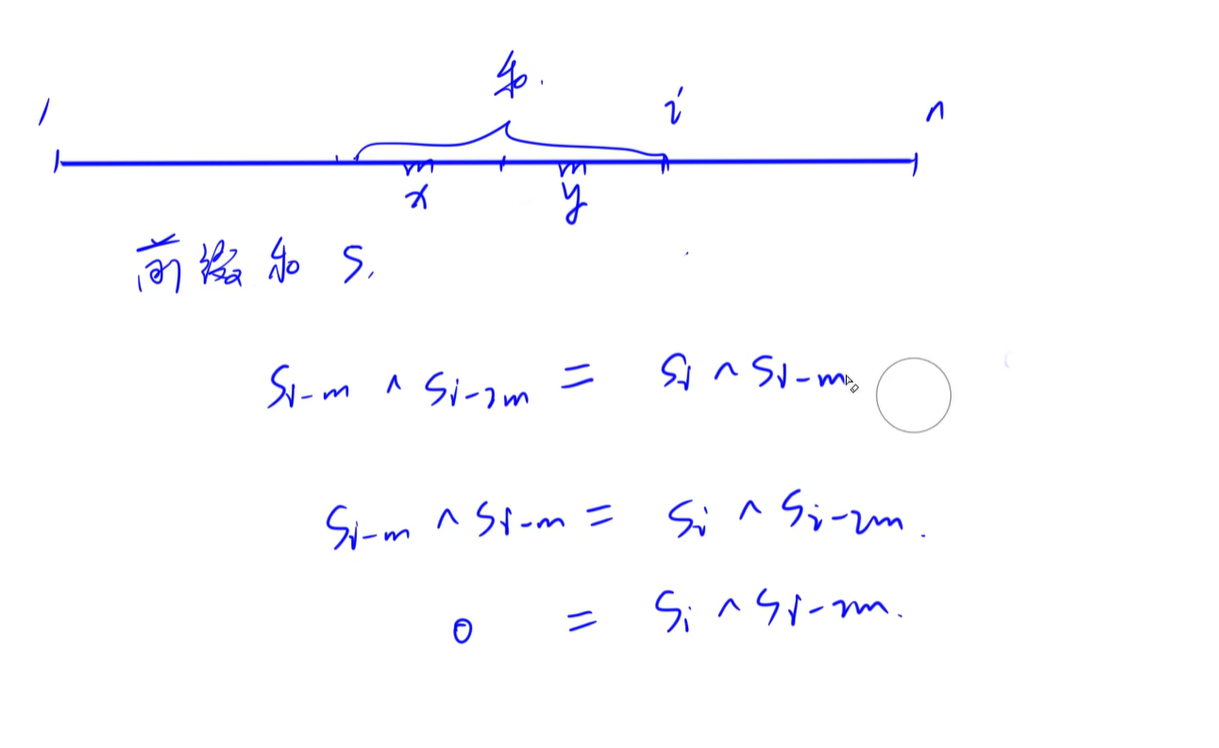 和.
1 i n
m m
x y
前缀和 S.
Si-m ^ Si-2m = Si ^ Si-m
Si-m ^ Si-m = Si ^ Si-2m.
0 = Si ^ Si-2m.